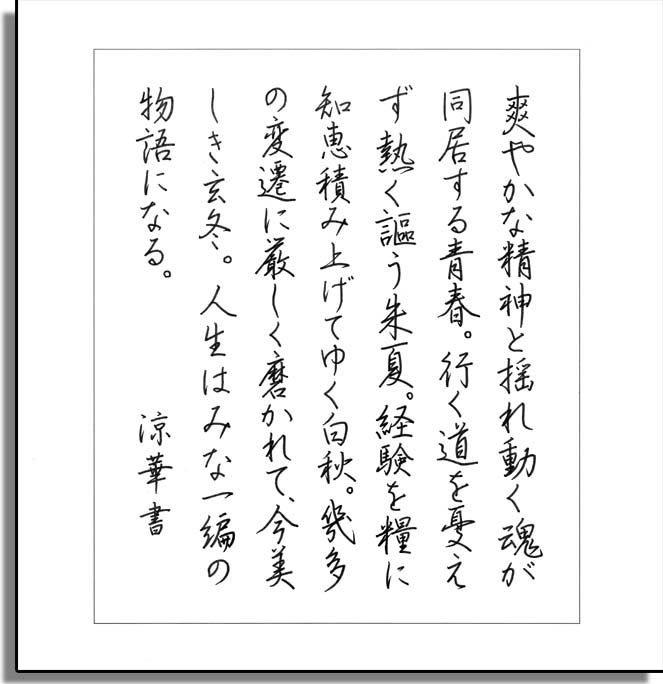 爽やかな精神と揺れ動く魂が
同居する青春。行く道を憂え
ず熱く謳う朱夏。経験を糧に
知恵積み上げてゆく白秋。幾多
の変遷に厳しく磨かれて、今美
しき玄冬。人生はみな一編の
物語になる。
涼華書